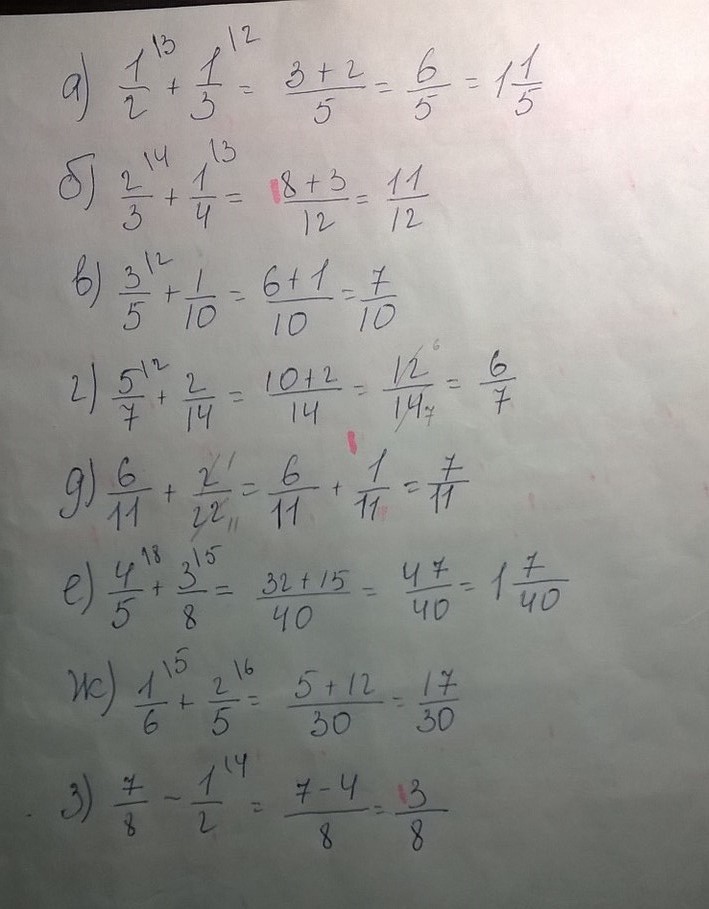 а) 1/2 \3 + 1/3 \2 = 3+2/5 = 6/5 = 1 1/5
б) 2/3 \4 + 1/4 \3 = 8+3/12 = 11/12
в) 3/5 \2 + 1/10 = 6+1/10 = 7/10
г) 5/7 \2 + 2/14 = 10+2/14 = 12 6/14 7 = 6/7
д) 6/11 + 2 1/22 11 = 6/11 + 1/11 = 7/11
е) 4/5 \8 + 3/8 \5 = 32+15/40 = 47/40 = 1 7/40
ж) 1/6 \5 + 2/5 \6 = 5+12/30 = 17/30
з) 7/8 - 1/2 \4 = 7-4/8 = 3/8